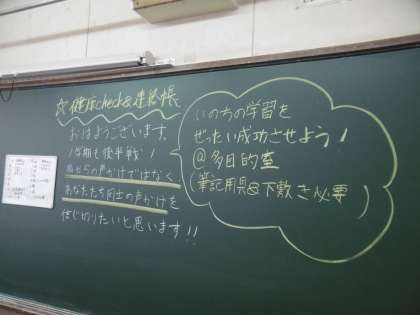 ☆健康check&連絡帳
おはようございます。
1学期も後半戦!
私からの声かけではなく、
あなたたち同士の声かけを
信じ切りたいと思います!!
いのちの学習を
ぜったい成功させよう!
@多目的室
(筆記用具&下敷き必要)